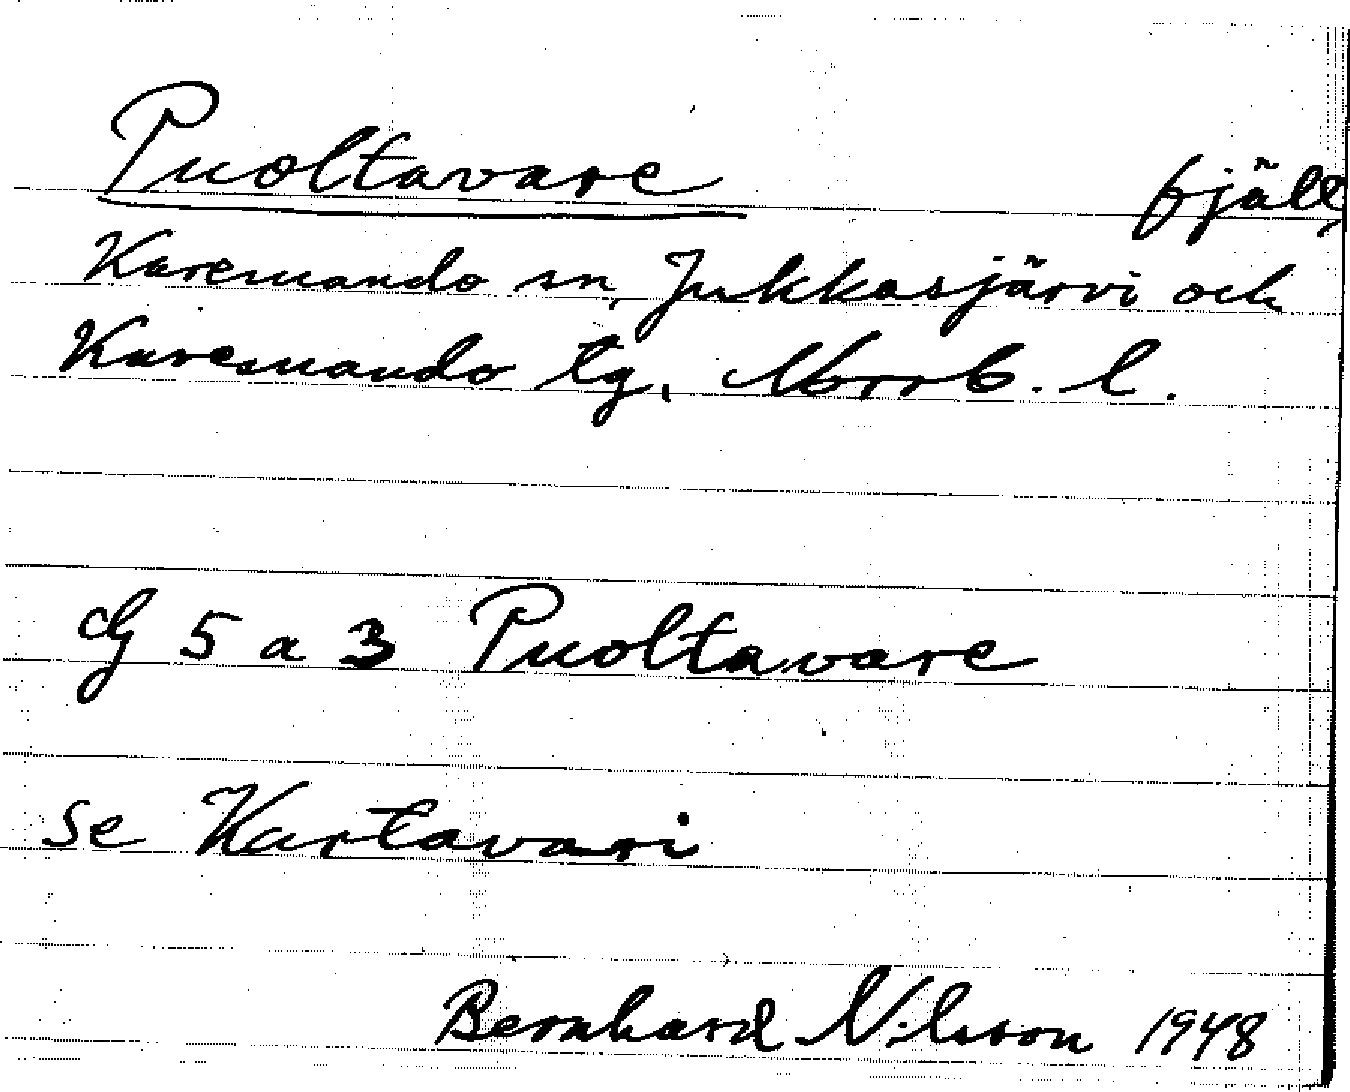 Puoltavare fjäll,
Karesuando sn, Jukkasjärvi och
Karesuando tg, Norrb. l.
dj 5 a 3 Puoltavare
se Kartavari
Bernhard Nilsson 1948